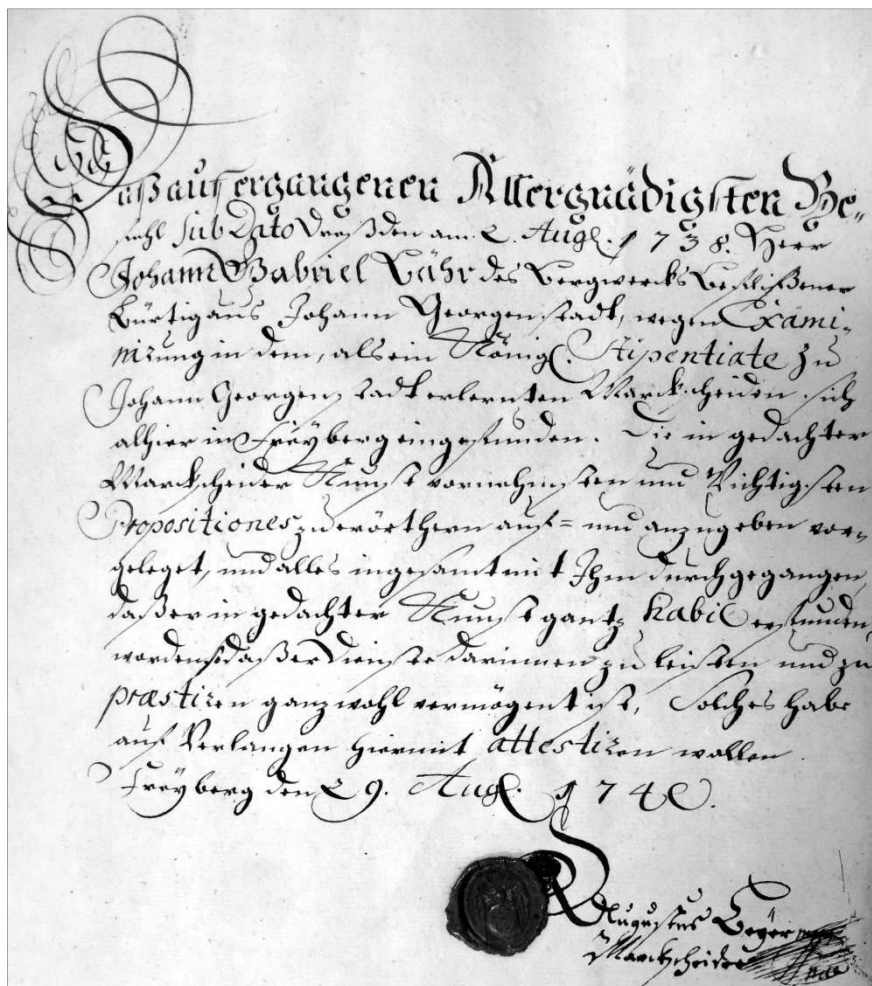 Daß auf ergangenen Allergnädigsten Be-
fehl sub Dato Dreßden am 2. Aug. 1738. Herr
Johann Gabriel Löhr des Bergwercks Beflißener
bürtig aus Johann Georgenstadt, wegen Exami-
nirung in dem, als ein Königl. Stipentiate zu
Johann Georgenstadt erlernten Marckscheiden sich
alhier in Freÿberg eingefunden. Die in gedachter
Marckscheider Kunst vornehmsten und Wichtigsten
Propositiones zu erörthern auf= und anzugeben vor-
geleget, und alles ingesamt mit Ihm durchgegangen,
daß er in gedachter Kunst gantz habil erfunden,
worden, daß er Dienste darinnen zu leisten und zu
præstiren ganz wohl vermögent ist, Solches habe
auf Verlangen hiermit attestiren wollen
Freÿberg den 29. Aug. 1740.
Augustus Beÿer
Marckscheider